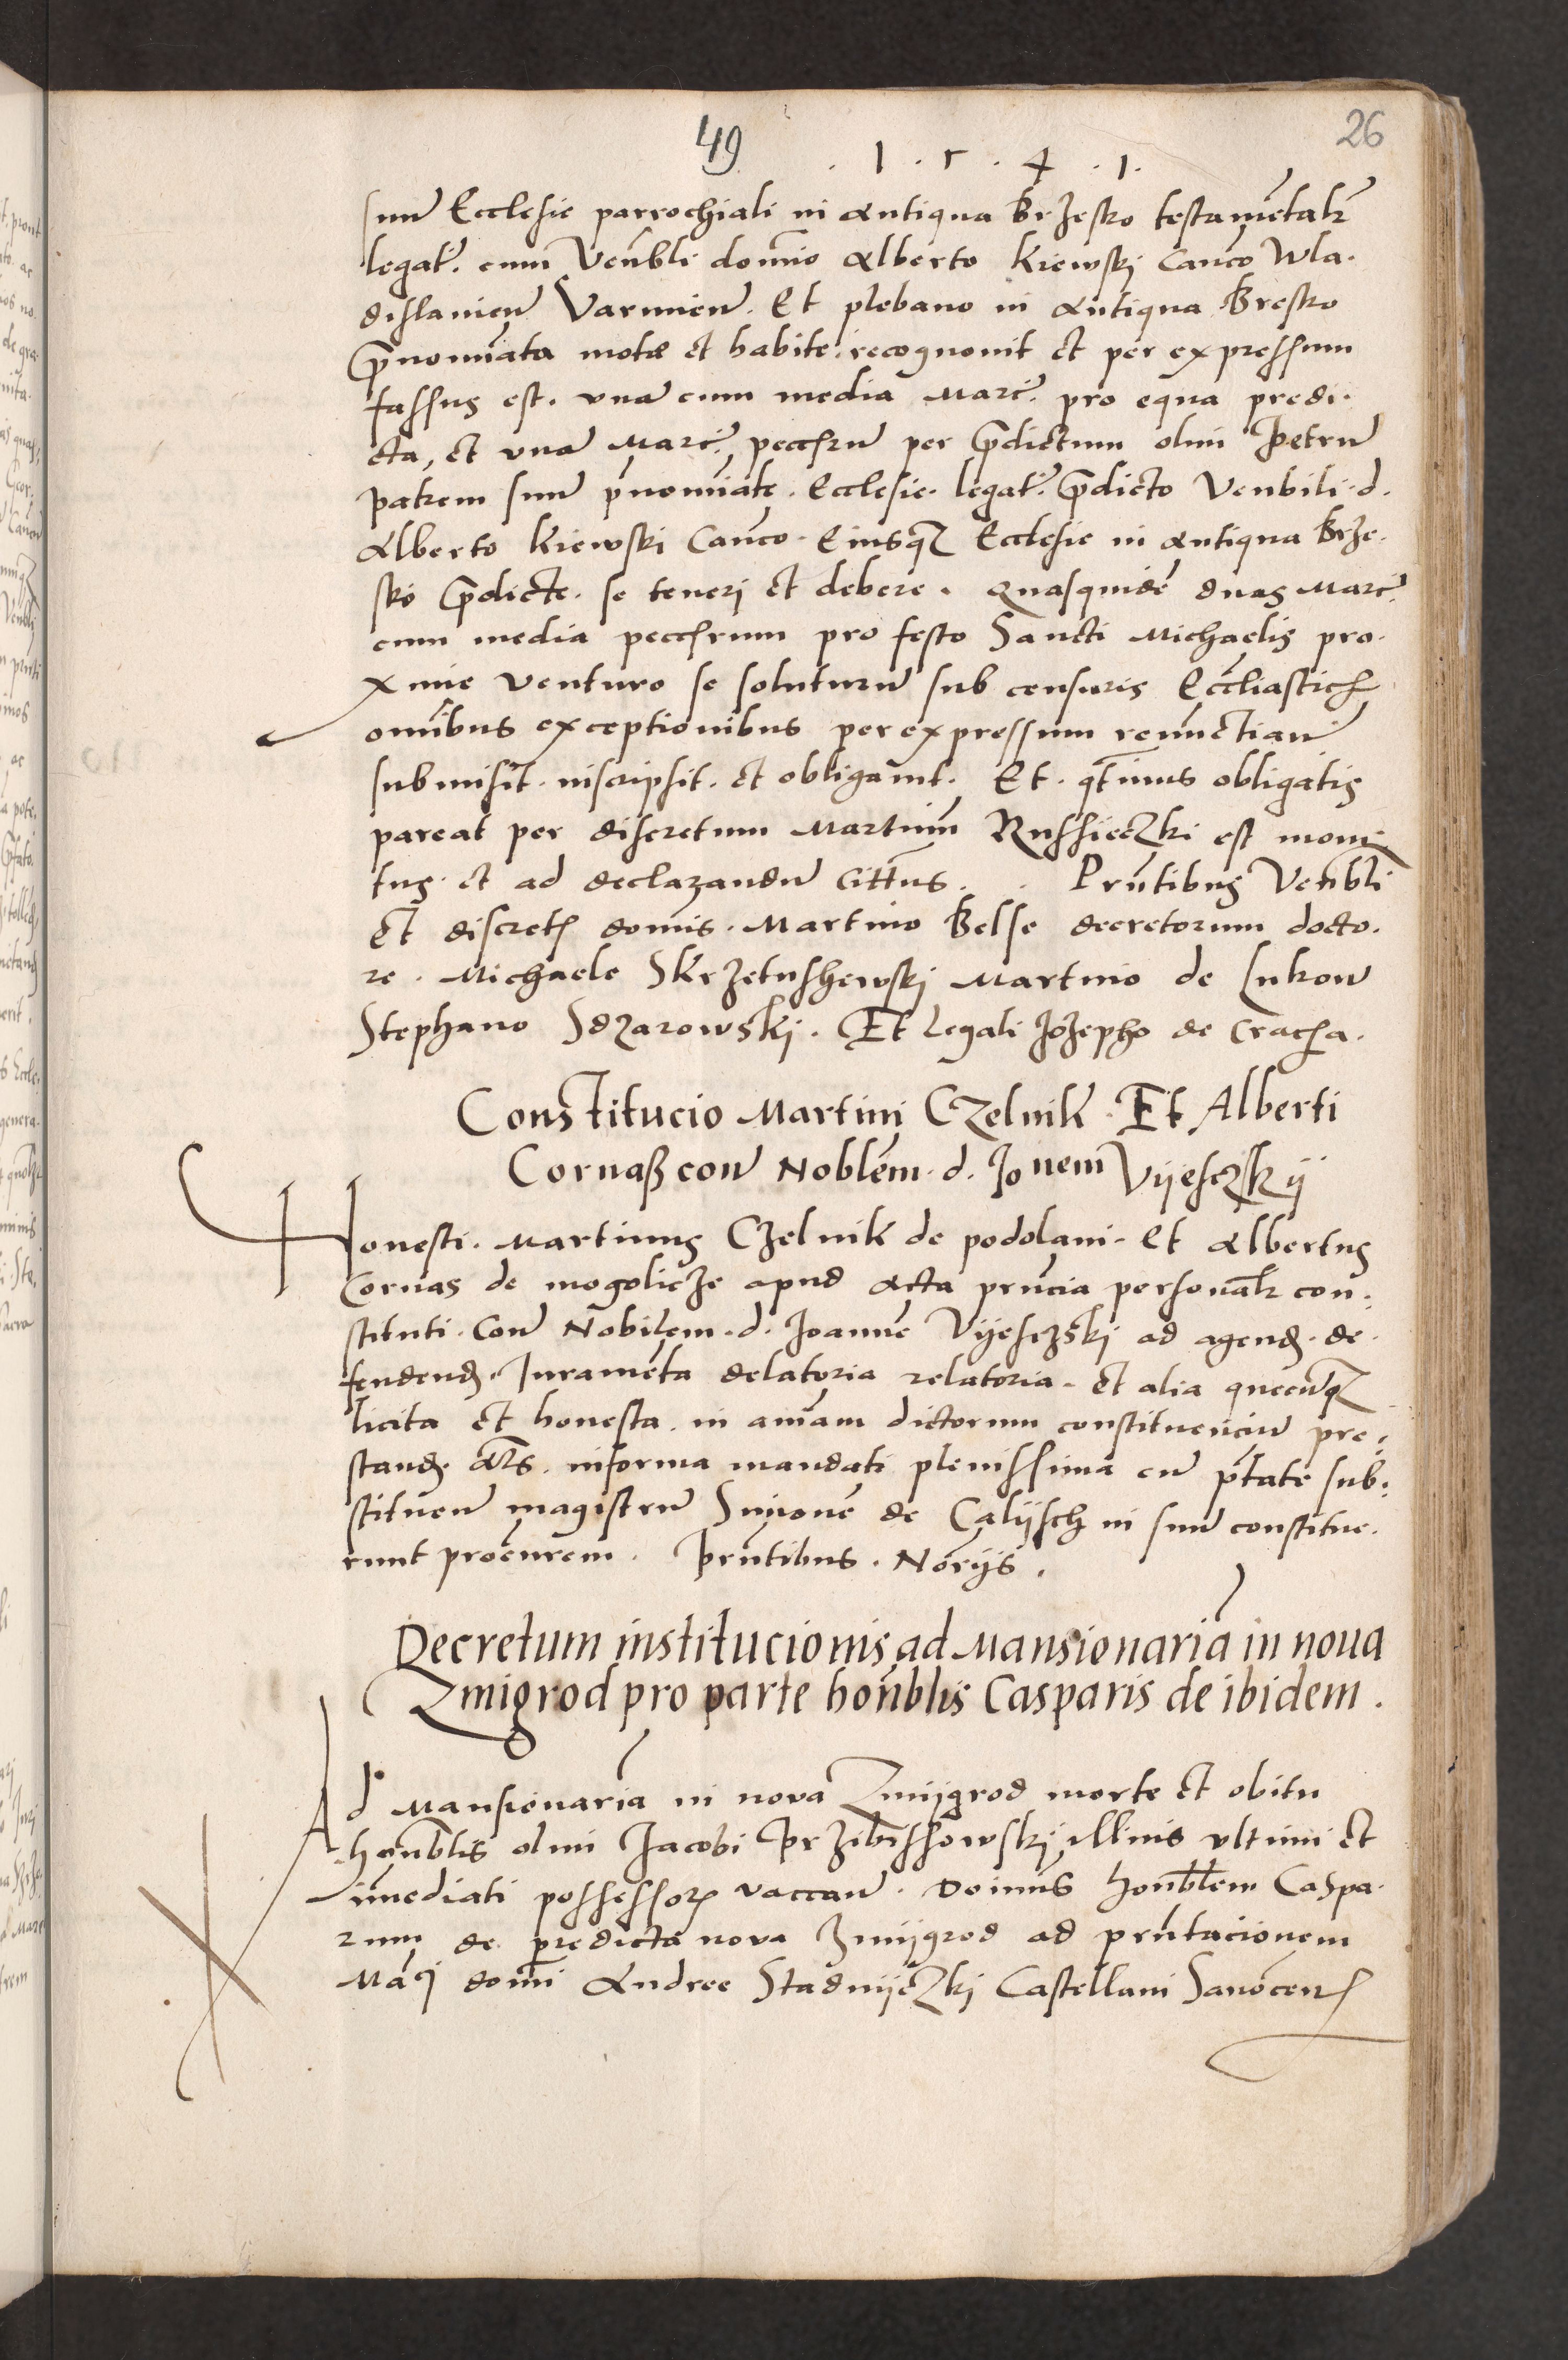 49
26
. 1 . 5 . 4 . 1 .
suum Ecclesie parrochiali in Antiqua Brzesko testamentalr
legat. cum Venbli domino Alberto Kiewskj Canco Wla.
dislavien Varmien. Et plebano in Antiqua Bresko
prenominata motæ et habite. recognovit et per expressum
fassus est. una cum media Marc. pro equa predi.
cta, et una Marc. pecchrum per predictum olim Petrum
patrem suum prenominate. Ecclesie. legat. predicto Venbili. d.
Alberto Kiewski Canco. Eiusq Ecclesie in Antiqua Brze.
sko predicte. se tenerj et debere. Quasquidem duas Marc.
cum media pecchrum pro festo Sancti Michaelis pro.
xime Venturo se soluturum sub censuris Ecclesiastich
omnibus exceptionibus per expressum renunctian
submisit. inscripsit. et obligavit. Et. qtinus obligatis
pareat per discretum Martinum Russieczki est moni.
tus. et ad declarandum Cittus. . Prntibus Venbli
Et discretis dominis. Martino Belse decretorum docto.
re. Michaele Skrzetushewskj Martino de Lukow
Stephano Sdzarowskj. Et Legali Jozepho de Cracha.
Constitucio Martini Czelnik. Et Alberti
Cornaß con Noblem. d. Jonem Vijesczkij
Honesti. Martinus Czelnik de podolani. Et Albertus
Cornas de mogolicze apud Acta prncia personalr con.
stituti. Con Nobilem. d. Joannem Vijesczskj ad agend. de.
fendend. Juramenta delatoria relatoria. et alia quecunq
licita et honesta. in animam dictorum constituencium pre.
stand. Als. in forma mandati plenissima cum ptate sub.
stituen magistrum Simonem de Calijsch in suum constitue.
runt procurem. Prntibus. Norijs.
Decretum institucionis ad Mansionariam in nova
Zmigrod pro parte honblis Casparis de ibidem.
Ad Mansionariam in nova Zmijgrod morte et obitu
honblis olim Jacobi Przibissowskj illius ultimi et
immediati possessoris vaccan. Dominus honblem Caspa.
rum de predicta nova Zmijgrod ad prntacionem
Macj domini Andree Stadnijczkj Castellani Sanocen